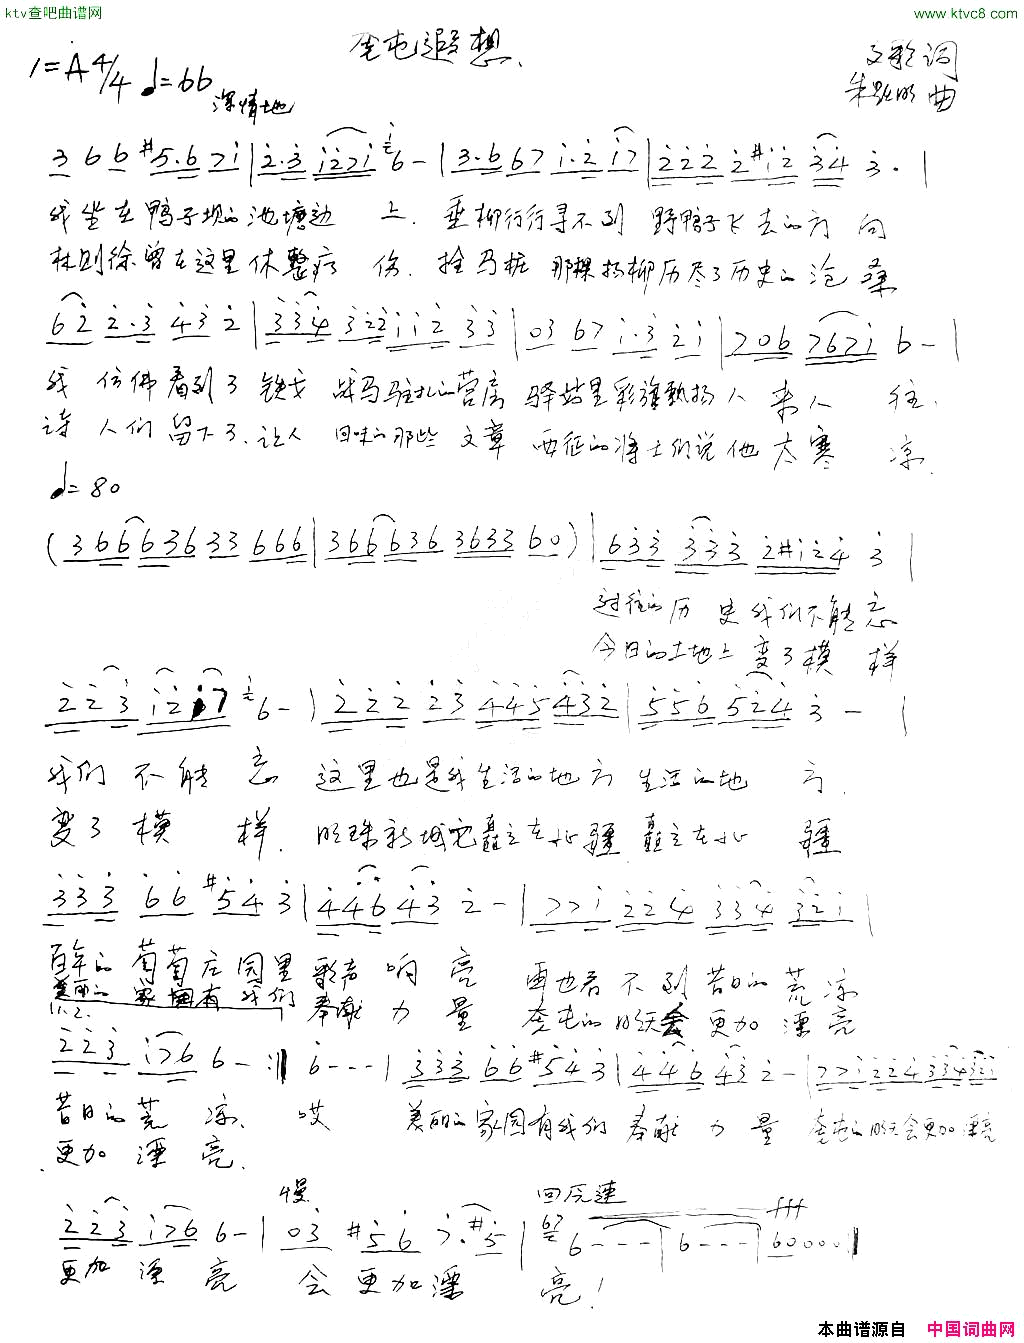 ktv查吧曲谱网
www.ktvc8.com
奎屯遐想
1=A 4/4 ♩=66
深情地
词
朱 曲
3 6 6 #5·6 7 i | 2·3 i 2 7 i 6 - | 3·6 6 7 i·2 i 7 | 2 2 2 2 #i 2 3 4 3· |
我坐在鸭子坝的池塘边 上. 垂柳行行寻不到 野鸭子飞去的方 向
林则徐曾在这里休整疗 伤. 拴马桩 那棵杨柳历尽了历史的沧 桑
6 2 2·3 4 3 2 | 3 3 4 3 2 2 i i 2 3 3 | 0 3 6 7 i·3 2 i | 7 0 6 7 6 7 i 6 - |
我 仿佛看到了 铁戈 战马驻扎的营房 驿站里彩旗飘扬人 来人 往.
诗 人们 留下了.让人 回味的那些 文章 西征的将士们说他太寒 凉.
♩=80
(3 6 6 6 3 6 3 3 6 6 6 | 3 6 6 6 3 6 3 6 3 3 6 0) | 6 3 3 3 3 3 2 #i 2 4 3 |
过往的历 史我们不能忘
今日的土地上 变了模 样
2 2 3 i 2 i 7 6 - | 2 2 2 2 3 4 4 5 4 3 2 | 5 5 6 5 2 4 3 - |
我们 不能 忘 这里也是我生活的地方 生活的地 方.
变了模 样. 明珠新城它矗立在北疆 矗立在北 疆
3 3 3 6 6 #5 4 3 | 4 4 6 4 3 2 - | 7 7 i 2 2 4 3 3 4 3 2 i |
百年的葡萄庄园里 歌声 响 亮 再也看不到昔日的荒凉
美丽的家拥有我们 奉献 力 量 奎屯的明天会更加漂亮
1.2.
2 2 3 i 7 6 6 - :| 6 - - - | 3 3 3 6 6 #5 4 3 | 4 4 6 4 3 2 - | 7 7 i 2 2 4 3 3 4 3 2 i
昔日的荒 凉. 哎 美丽的家园有我们 奉献 力 量 奎屯的明天会更加漂亮
更加漂 亮.
慢 回原速 fff
2 2 3 i 7 6 6 - | 0 3 #5 6 7·#5 | 6 7 6 - - - | 6 - - - | 6 0 0 0 0 ||
更加 漂 亮 会 更加漂 亮!
本曲谱源自 中国词曲网